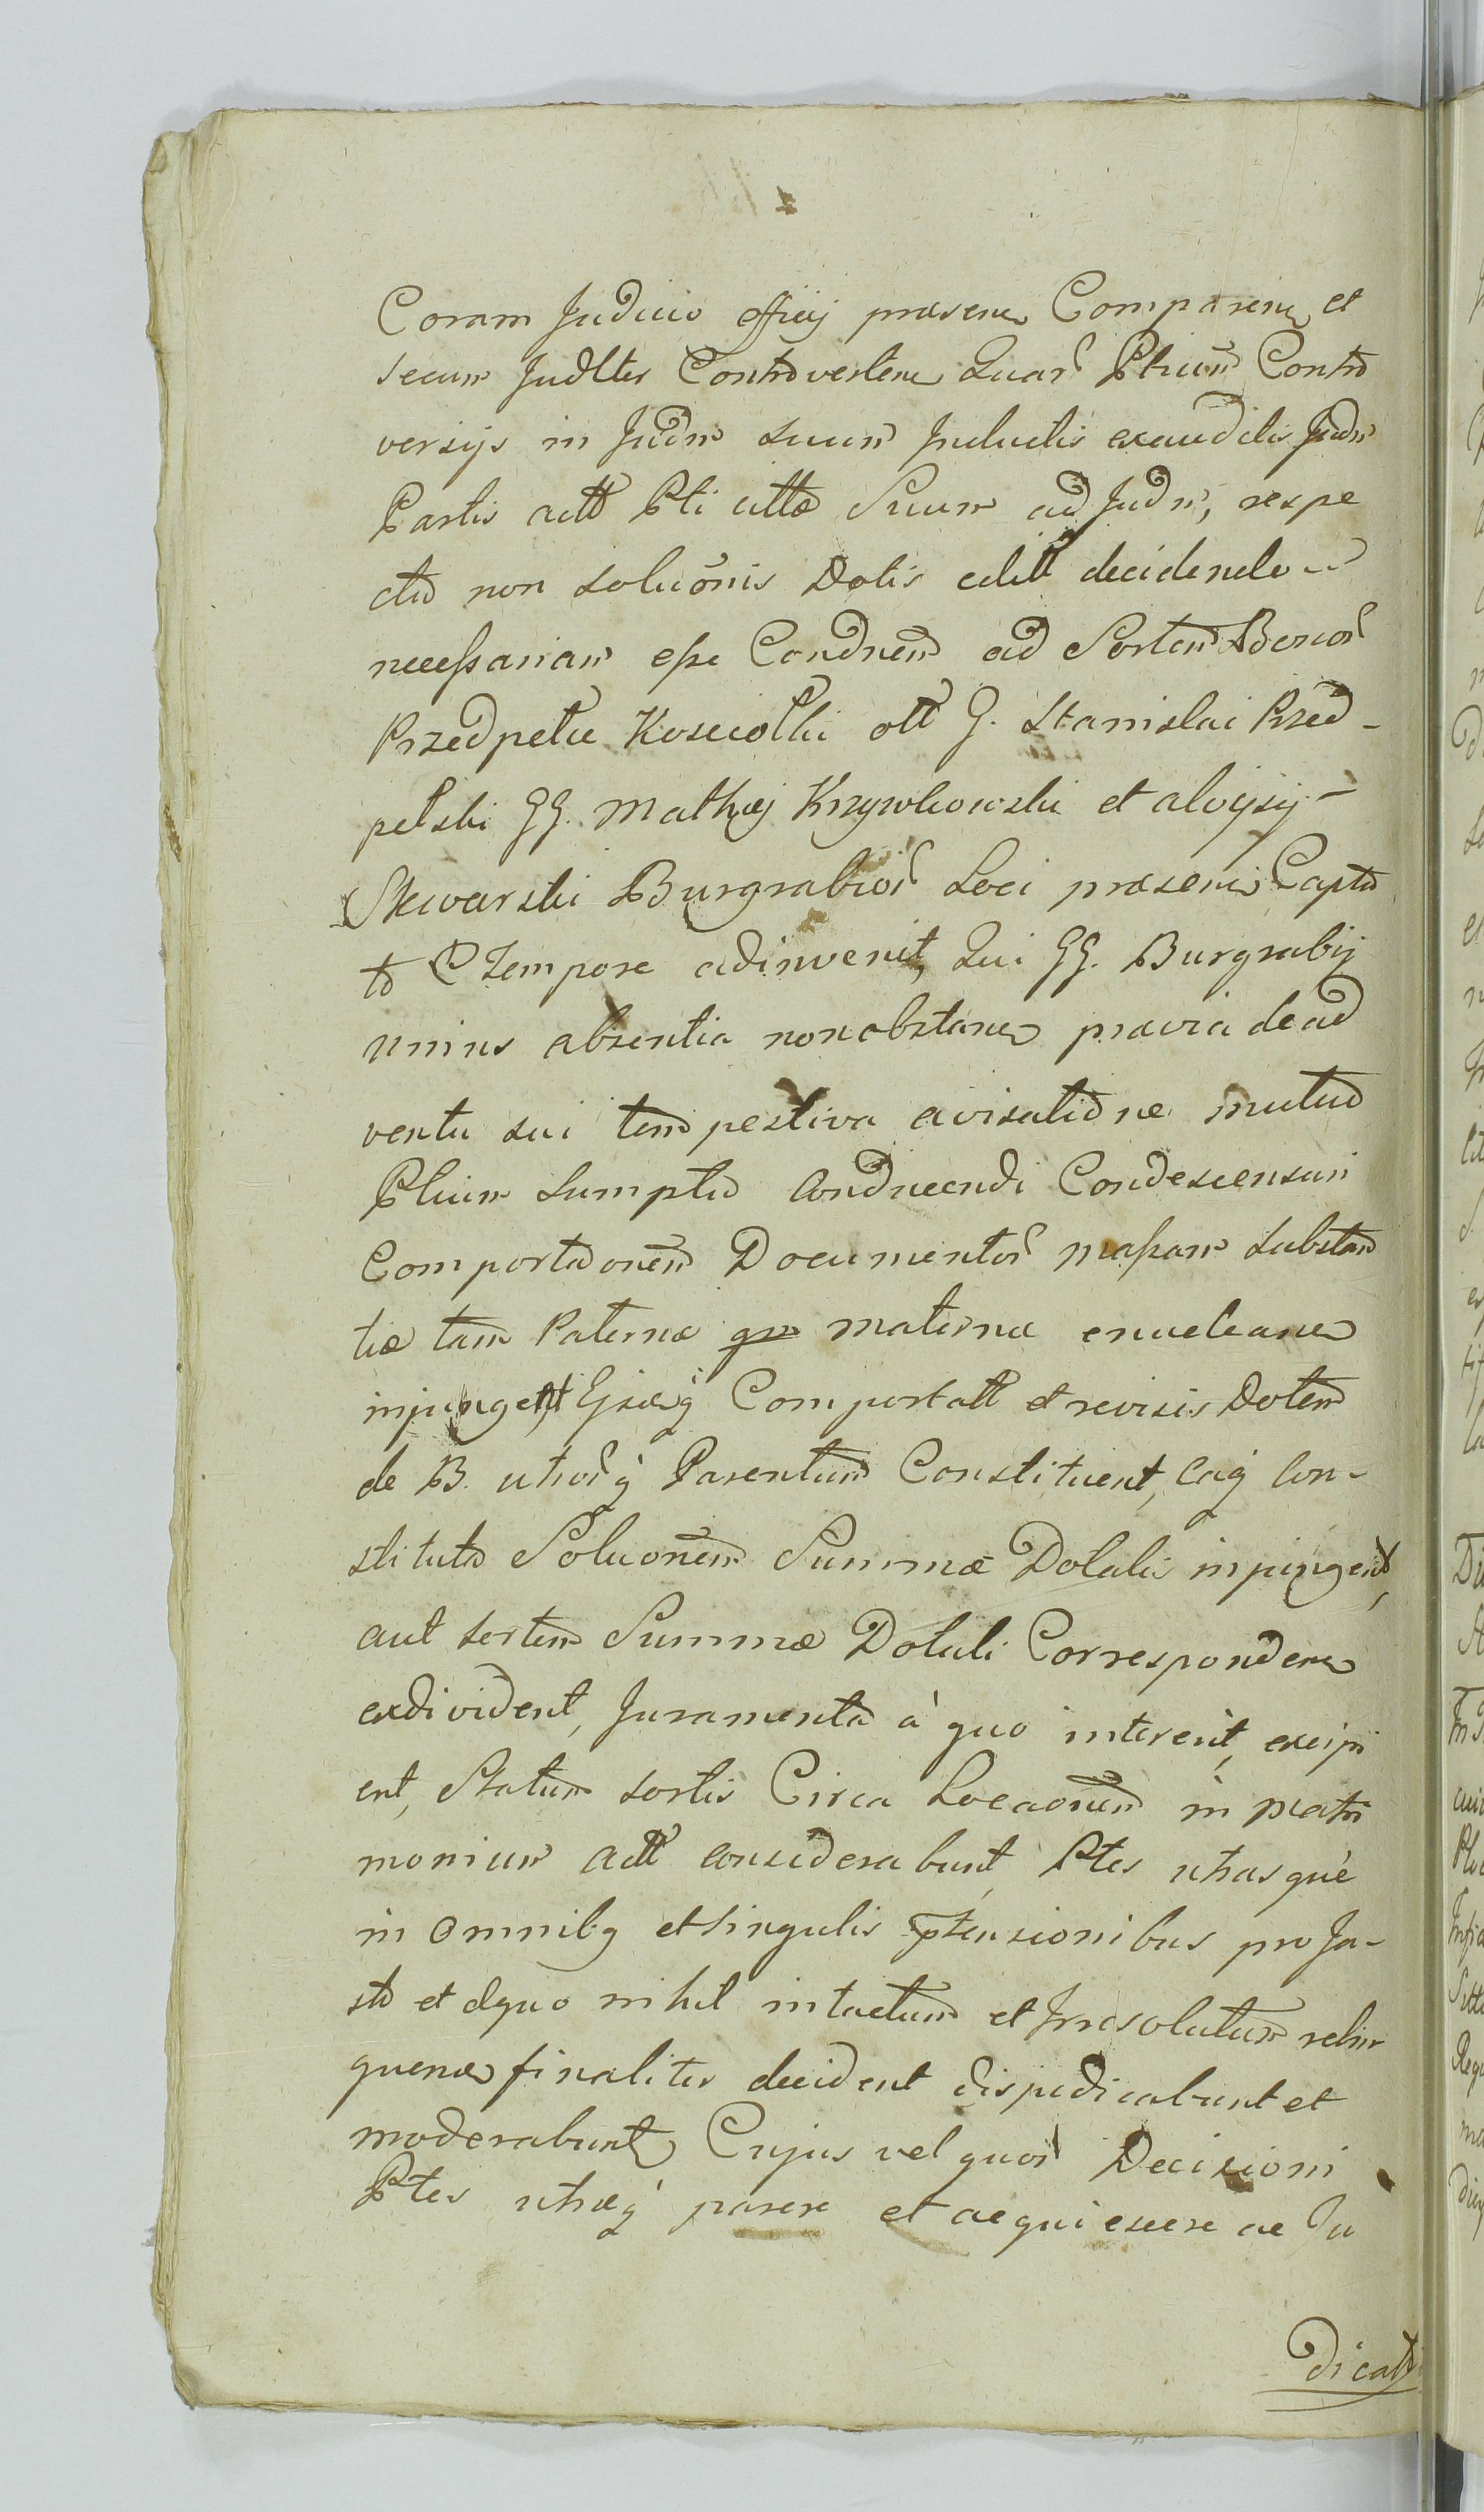 Coram Judicio officij praesen Comparen et
secum Judlter Controverten Quar Ptium Contro
versijs in Judm suum Inductis exauditis Judm
Partis actt Pti cittae Suum ad Judm, respe
ctu non soluōnis Dotis editt decidendo
necessariam esse Condnem ad Sortem Bonor
Przedpełce Kosciołki ott G. Stanislai Przed-
pełski GG. Mathaej Krzywkowski et aloijsij
Skwarski Burgrabior Loci praesenis Capta
to Ctempore adinvenit, Qui GG. Burgrabij
unius absentia nonobstane praevia de ad
ventu sui tempestiva avisatione mutuo
Ptium sumptu Condncendi Condescensuri
Comportaonem Documentor massam substan
tiae tam Paternae qm maternae enuclean
injungent, Ejsdq Comportatt et revisis Dotem
de B. utrorq Parentum Constituent, eaq con-
stituta Soluonem Summae Dotalis inpingent,
aut sortem Summae Dotali Corresponden
exdivident, Juramenta à quo intererit, excipi
ent, Statum sortis Circa Locaonem in matri
monium actt considerabunt, Ptes utrasque
in omnibq et singulis ptensionibus pro Ju-
sto et aequo nihil intactum et Irresolutum relin
quen finaliter decident dispudicabunt et
moderabunt Cujus vel quor Decisioni
Ptes utraeq parere et acquiescere ac Ju
dicatt